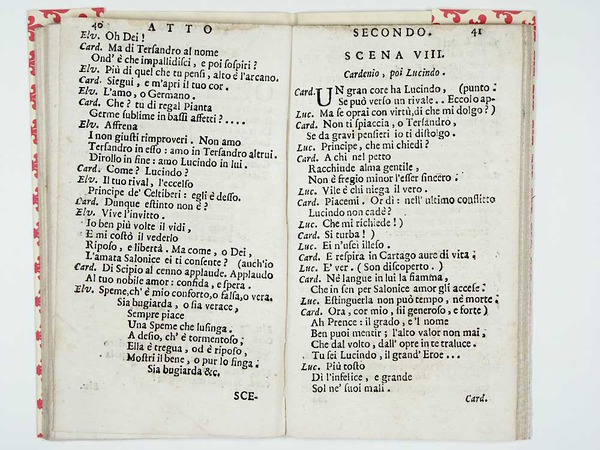 40 ATTO
Elv. Oh Dei!
Card. Ma di Tersandro al nome
Ond' è che impallidisci, e poi sospiri?
Elv. Più di quel che tu pensi, alto è l'arcano.
Card. Siegui, e m'apri il tuo cor.
Elv. L'amo, o Germano.
Card. Che? tu di regal Pianta
Germe sublime in bassi affetti?....
Elv. Affrena
I non giusti rimproveri. Non amo
Tersandro in esso: amo in Tersandro altrui.
Dirollo in fine: amo Lucindo in lui.
Card. Come? Lucindo?
Elv. Il tuo rival, l'eccelso
Principe de' Celtiberi: egli è desso.
Card. Dunque estinto non è?
Elv. Vive l'invitto.
Io ben più volte il vidi,
E mi costò il vederlo
Riposo, e libertà. Ma come, o Dei,
L'amata Salonice ei ti consente? (auch'io
Card. Di Scipio al cenno applaude. Applaudo
Al tuo nobile amor: confida, e spera.
Elv. Speme, ch' è mio conforto, o falsa, o vera,
Sia bugiarda, o sia verace,
Sempre piace
Una Speme che lusinga.
A desio, ch' è tormentoso,
Ella è tregua, od è riposo,
Mostri il bene, o pur lo finga.
Sia bugiarda &c.
SCE-
SECONDO. 41
SCENA VIII.
Cardenio, poi Lucindo.
Card. UN gran core ha Lucindo, (punto:
Se può verso un rivale.. Eccolo ap-
Luc. Ma se oprai con virtù, di che mi dolgo?)
Card. Non ti spiaccia, o Tersandro,
Se da gravi pensieri io ti distolgo.
Luc. Principe, che mi chiedi?
Card. A chi nel petto
Racchiude alma gentile,
Non è fregio minor l'esser sincero.
Luc. Vile è chi niega il vero.
Card. Piacemi. Or dì: nell' ultimo conflitto
Lucindo non cadè?
Luc. Che mi richiede!)
Card. Si turba!)
Luc. Ei n'uscì illeso.
Card. E respira in Cartago aure di vita?
Luc. E' ver. (Son discoperto.)
Card. Nè langue in lui la fiamma,
Che in sen per Salonice amor gli accese?
Luc. Estinguerla non può tempo, nè morte.
Card. Ora, cor mio, sii generoso, e forte)
Ah Prence: il grado, e 'l nome
Ben puoi mentir; l'alto valor non mai,
Che dal volto, dall' opre in te traluce.
Tu sei Lucindo, il grand' Eroe...
Luc. Più tosto
Dì l'infelice, e grande
Sol ne' suoi mali.
Card.